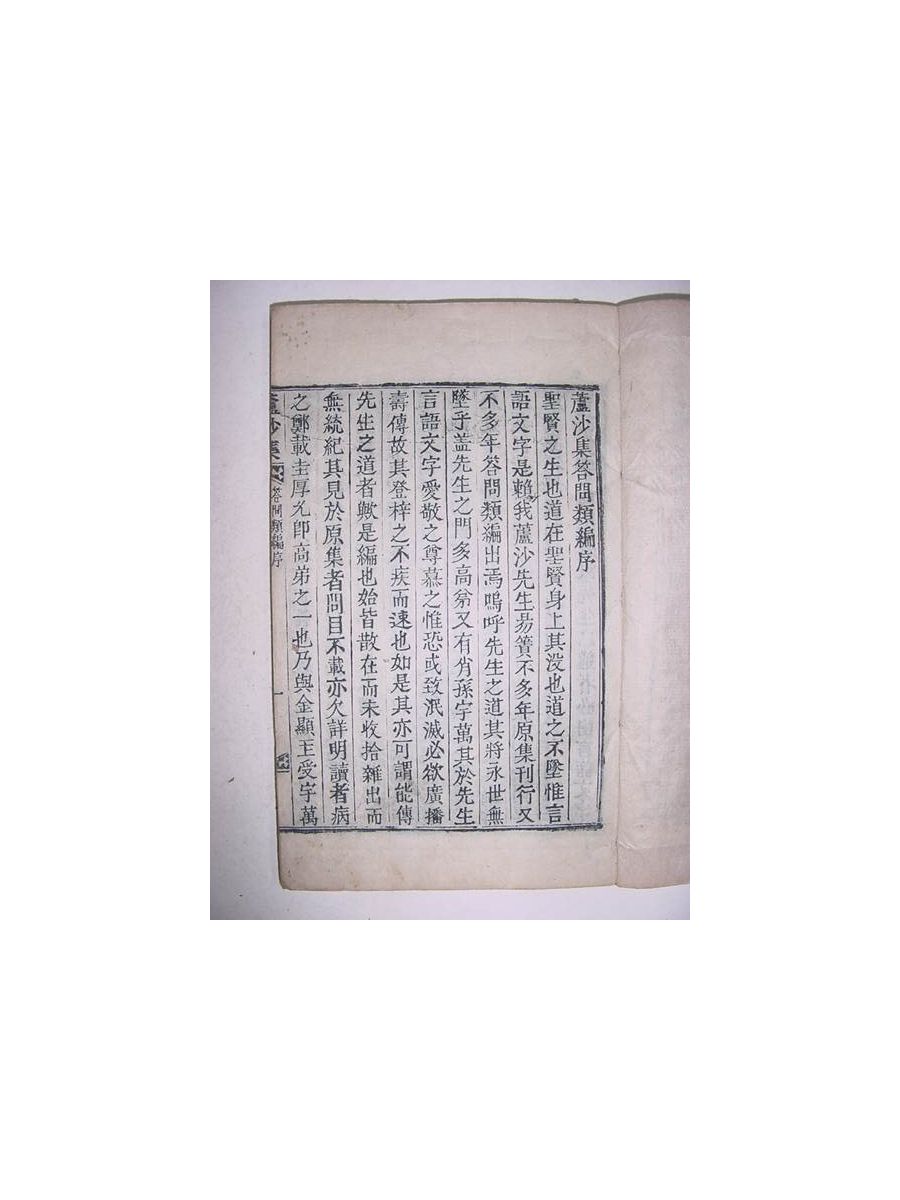 蘆沙集答問類編序
聖賢之生也道在聖賢身上其没也道之不墜惟言
語文字是賴我蘆沙先生易簀不多年原集刊行又
不多年答問類編出焉嗚呼先生之道其將永世無
墜乎盖先生之門多高弟又有肖孫字萬其於先生
言語文字愛敬之尊慕之惟恐或致泯滅必欲廣播
壽傳故其登梓之不疾而速也如是其亦可謂能傳
先生之道者歟是編也始皆散在而未收拾雜出而
無統紀其見於原集者問目不載亦欠詳明讀者病
之鄭載圭厚允卽高弟之一也乃與金顯玉受字萬
蘆沙集
答問類編序
一